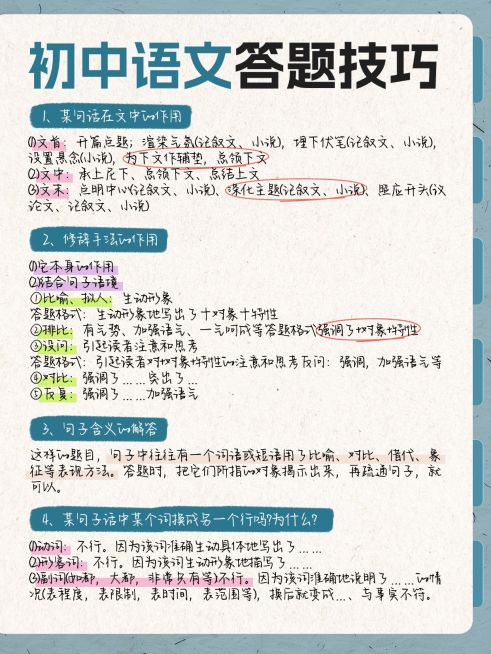 初中语文答题技巧
1、某句话在文中的作用
(1)文首：开篇点题；渲染气氛(记叙文、小说)，埋下伏笔(记叙文、小说)，
设置悬念(小说)，为下文作辅垫，总领下文
(2)文中：承上启下、总领下文、总结上文
(3)文末：点明中心(记叙文、小说)、深化主题(记叙文、小说)、照应开头(议
论文、记叙文、小说)
2、修辞手法的作用
(1)它本身的作用
(2)结合句子语境
①比喻、拟人：生动形象
答题格式：生动形象地写出了+对象+特性
②排比：有气势、加强语气、一气呵成等答题格式强调了+对象+特性
③设问：引起读者注意和思考
答题格式：引起读者对+对象+特性的注意和思考反问：强调，加强语气等
④对比：强调了……突出了…
⑤反复：强调了……加强语气
3、句子含义的解答
这样的题目，句子中往往有一个词语或短语用了比喻、对比、借代、象
征等表现方法。答题时，把它们所指的对象揭示出来，再疏通句子，就
可以。
4、某句子话中某个词换成另一个行吗?为什么?
(1)动词：不行。因为该词准确生动具体地写出了……
(2)形容词：不行。因为该词生动形象地描写了……
(3)副词(如都，大都，非常只有等)不行。因为该词准确地说明了……的情
况(表程度，表限制，表时间，表范围等)，换后就变成…、与事实不符。